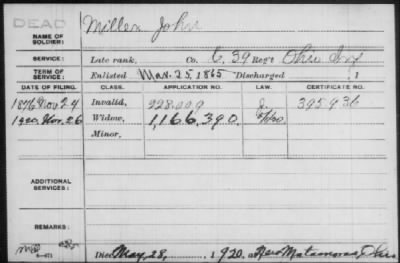 DEAD
Miller John
NAME OF
SOLDIER:
SERVICE:
Late rank, Co. C, 39 Reg't Ohio Inf
TERM OF
SERVICE:
Enlisted Mar. 25, 1865 Discharged , 1
DATE OF FILING.
CLASS.
APPLICATION NO.
LAW.
CERTIFICATE NO.
1876 Nov 24 Invalid, 228.009 395936
1920. Nov. 26 Widow, 1,166,390.
Minor,
ADDITIONAL
SERVICES:
REMARKS:
6-671
Died May, 28, 1920, at New Matamoras, Ohio